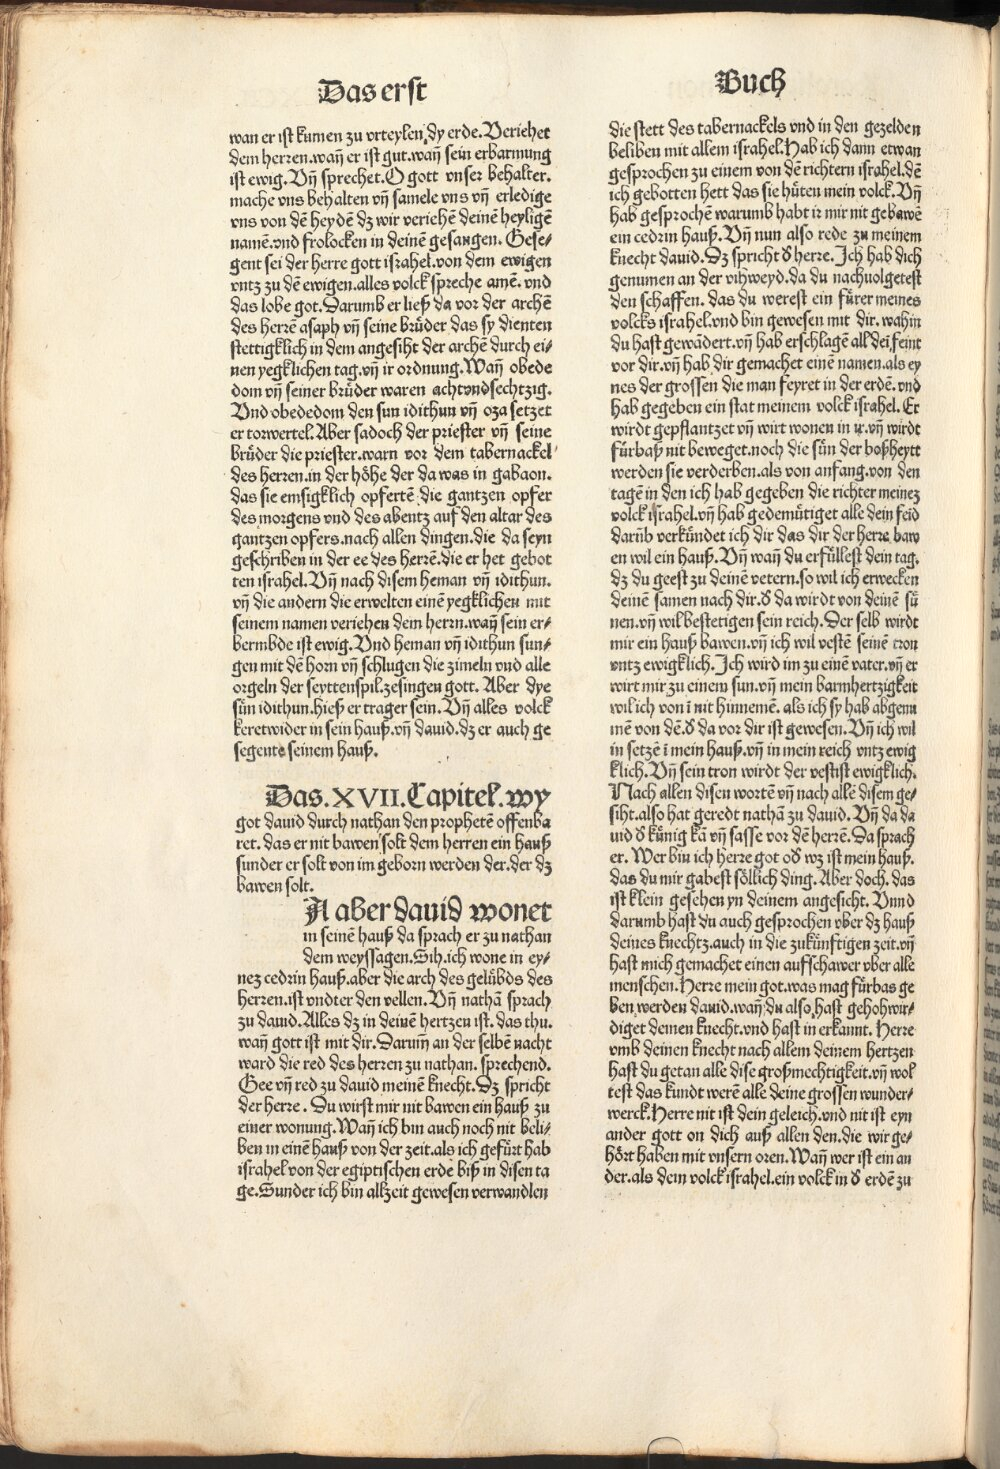 Das erst
wan er ist kumen zu vrteylen dy erde. Veriehet
dem herren. wañ er ist gut. wañ sein erbarmung
ist ewig. Vñ sprechet. O gott vnser behalter.
mache vns behalten vñ samele vns vñ erledige
vns von dē heydē dz wir veriehē deinē heyligē
namē. vnd frolocken in deinē gesangen. Gese-
gent sei der herre gott israhel. von dem ewigen
vntz zu dē ewigen. alles volck spreche amē. vnd
das lobe got. Darumb er ließ da vor der archē
des herrē asaph vñ seine brüder das sy dienten
stettigklich in dem angesiht der archē durch ei-
nen yegklichen tag. vñ ir ordnung. Wañ obede
dom vñ seiner brüder waren achtvndsechtzig.
Vnd obededom den sun idithun vñ oza setzet
er torwertel. Aber sadoch der priester vñ seine
brüder die priester. warn vor dem tabernackel
des herren. in der höhe der da was in gabaon.
das sie emsigklich opfertē die gantzen opfer
des morgens vnd des abentz auf den altar des
gantzen opfers. nach allen dingen. die da seyn
geschriben in der ee des herrē. die er het gebot
ten israhel. Vñ nach disem heman vñ idithun.
vñ die andern die erwelten einē yegklichen mit
seinem namen veriehen dem herrn. wañ sein er-
bermbde ist ewig. Vnd heman vñ idithun sun-
gen mit dē horn vñ schlugen die zimeln vnd alle
orgeln der seyttenspil. zesingen gott. Aber dye
sün idithun. hieß er trager sein. Vñ alles volck
keret wider in sein hauß. vñ dauid. dz er auch ge
segente seinem hauß.
Das. XVII. Capitel. wy
got dauid durch nathan den prophetē offenba
ret. das er nit bawen solt dem herren ein hauß
sunder er solt von im geborn werden der. der dz
bawen solt.
A aber dauid wonet
in seinē hauß da sprach er zu nathan
dem weyssagen. Sih. ich wone in ey-
nez cedrin hauß. aber die arch des gelübds des
herren. ist vndter den vellen. Vñ nathā sprach
zu dauid. Alles dz in deinē hertzen ist. das thu.
wañ gott ist mit dir. Darum̄ an der selbē nacht
ward die red des herren zu nathan. sprechend.
Gee vñ red zu dauid meinē knecht. Dz spricht
der herre. Du wirst mir nit bawen ein hauß zu
einer wonung. Wañ ich bin auch noch nit beli-
ben in einē hauß von der zeit. als ich gefürt hab
israhel von der egiptischen erde biß in disen ta
ge. Sunder ich bin allzeit gewesen verwandlen
Buch
die stett des tabernackels vnd in den gezelden
beliben mit allem israhel. Hab ich dann etwan
gesprochen zu einem von dē richtern israhel. dē
ich gebotten hett das sie hüten mein volck. Vñ
hab gesprochē warumb habt ir mir nit gebawē
ein cedrin hauß. Vñ nun also rede zu meinem
knecht dauid. Dz spricht ð herre. Ich hab dich
genumen an der vihweyd. da du nachuolgetest
den schaffen. das du werest ein fürer meines
volcks israhel. vnd bin gewesen mit dir. wahin
du hast gewādert. vñ hab erschlagē all dei feint
vor dir. vñ hab dir gemachet einē namen. als ey
nes der grossen die man feyret in der erdē. vnd
hab gegeben ein stat meinem volck israhel. Er
wirdt gepflantzet vñ wirt wonen in ir. vñ wirdt
fürbaß nit beweget. noch die sün der boßheytt
werden sie verderben. als von anfang. von den
tagē in den ich hab gegeben die richter meinez
volck israhel. vñ hab gedemütiget alle dein feid
darūb verkündet ich dir das dir der herre baw
en wil ein hauß. Vñ wañ du erfüllest dein tag.
dz du geest zu deinē vetern. so wil ich erwecken
deinē samen nach dir. ð da wirdt von deinē sü
nen. vñ wil bestetigen sein reich. Der selb wirdt
mir ein hauß bawen. vñ ich wil vestē seinē tron
vntz ewigklich. Ich wird im zu einē vater. vñ er
wirt mir zu einem sun. vñ mein barmhertzigkeit
wil ich von ī nit hinnemē. als ich sy hab abgenu
mē von dē. ð da vor dir ist gewesen. Vñ ich wil
in setzē ī mein hauß. vñ in mein reich vntz ewig
klich. Vñ sein tron wirdt der vestist ewigklich.
Nach allen disen wortē vñ nach allē disem ge-
siht. also hat geredt nathā zu dauid. Vñ da da
uid ð künig kā vñ sasse vor dē herrē. Da sprach
er. Wer bin ich herre got oð wz ist mein hauß.
das du mir gabest söllich ding. Aber doch. das
ist klein gesehen yn deinem angesicht. Vnnd
darumb hast du auch gesprochen vber dz hauß
deines knechtz. auch in die zukünftigen zeit. vñ
hast mich gemachet einen aufschawer vber alle
menschen. Herre mein got. was mag fürbas ge
ben werden dauid. wañ du also hast gehohwir-
diget deinen knecht. vnd hast in erkannt. Herre
vmb deinen knecht nach allem deinem hertzen
hast du getan alle dise großmechtigkeit. vñ wol
test das kundt werē alle deine grossen wunder-
werck. Herre nit ist dein geleich. vnd nit ist eyn
ander gott on dich auß allen den. die wir ge-
hört haben mit vnsern oren. Wañ wer ist ein an
der. als dein volck israhel. ein volck in ð erdē zu